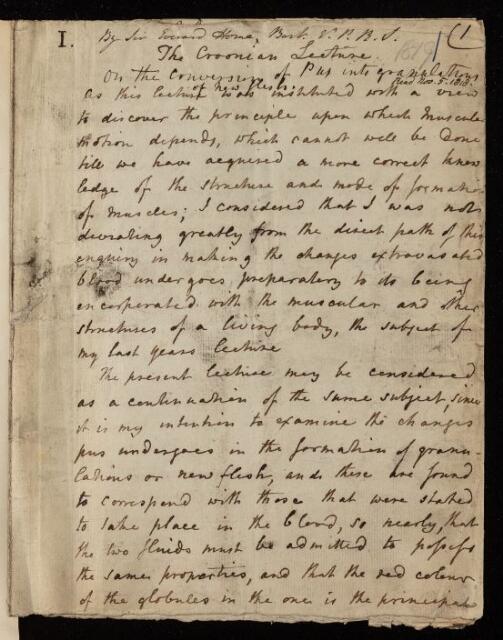 I.
By Sir Everard Home, Bart. V.P.R.S.
1819
(1
The Croonian Lecture.
On the conversion of Pus into granulations
or new flesh.
Read Nov. 5. 1818.
As this lecture was instituted with a view
to discover the principle upon which muscular
motion depends, which cannot well be done
till we have acquired a more correct know
ledge of the structure and mode of formation
of muscles; I considered that I was not
deviating greatly from the direct path of this
enquiry in making the changes extravasated
blood undergoes, preparatory to its being
encorporated with the muscular and other
structures of a living body, the subject of
my last years lecture
The present lecture may be considered
as a continuation of the same subject, since
it is my intention to examine the changes
pus undergoes in the formation of granu-
lations or new flesh, and these are found
to correspond with those that were stated
to take place in the blood, so nearly, that
the two fluids must be admitted to possess
the same properties, and that the red colour
of the globules in the one is the principal